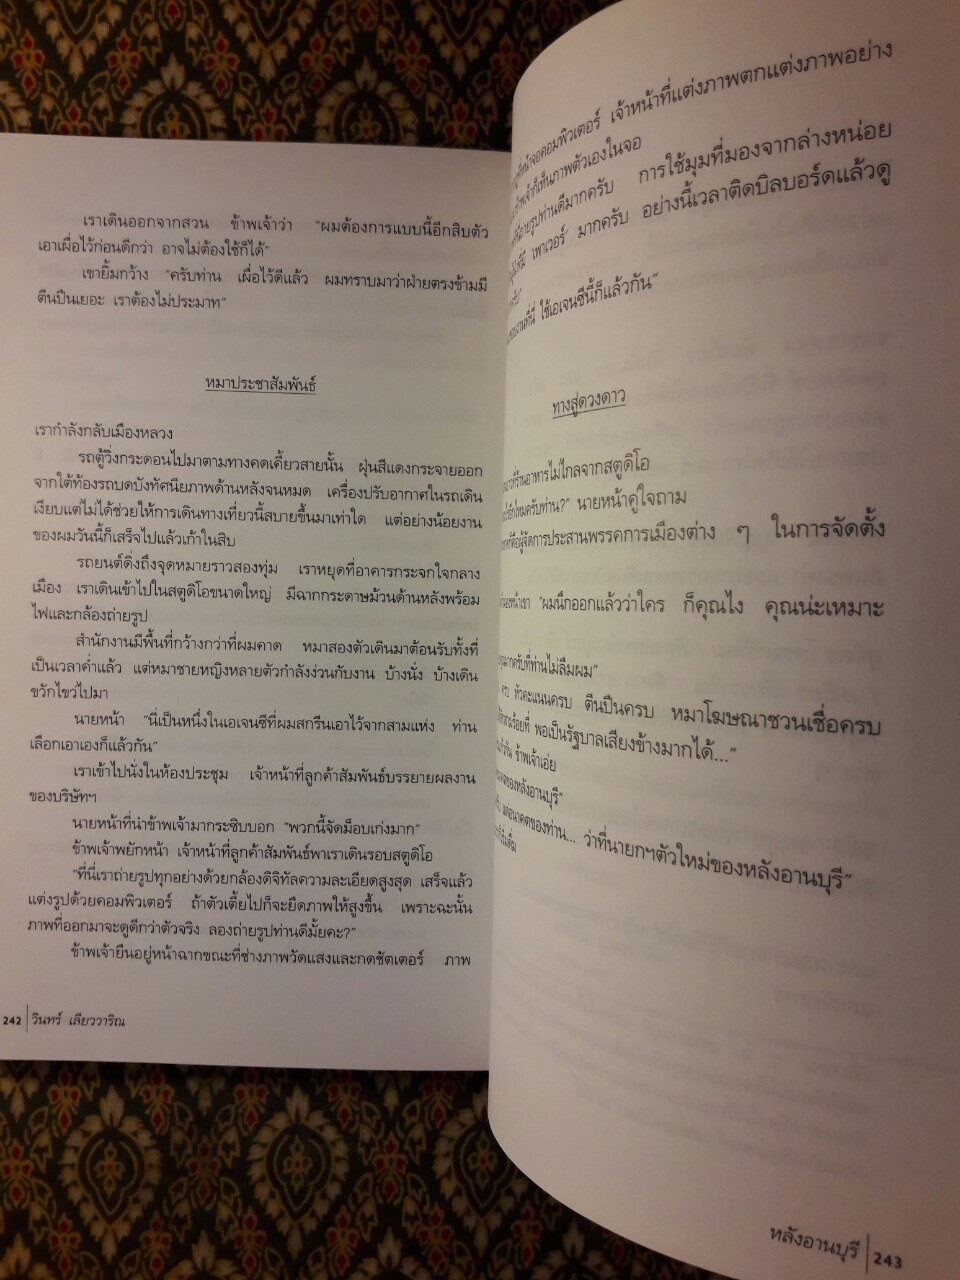 เราเดินออกจากสวน ข้าพเจ้าว่า "ผมต้องการแบบนี้อีกสิบตัว
เอาเผื่อไว้ก่อนดีกว่า อาจไม่ต้องใช้ก็ได้"
เขายิ้มกว้าง "ครับท่าน เผื่อไว้ดีแล้ว ผมทราบมาว่าฝ่ายตรงข้ามมี
ตีนปืนเยอะ เราต้องไม่ประมาท"
หมาประชาสัมพันธ์
เรากำลังกลับเมืองหลวง
รถตู้วิ่งกระดอนไปมาตามทางคดเคี้ยวสายนั้น ฝุ่นสีแดงกระจายออก
จากใต้ท้องรถบดบังทัศนียภาพด้านหลังจนหมด เครื่องปรับอากาศในรถเดิน
เงียบแต่ไม่ได้ช่วยให้การเดินทางเที่ยวนี้สบายขึ้นมาเท่าใด แต่อย่างน้อยงาน
ของผมวันนี้ก็เสร็จไปแล้วเก้าในสิบ
รถยนต์ดิ่งถึงจุดหมายราวสองทุ่ม เราหยุดที่อาคารกระจกใจกลาง
เมือง เราเดินเข้าไปในสตูดิโอขนาดใหญ่ มีฉากกระดาษม้วนด้านหลังพร้อม
ไฟและกล้องถ่ายรูป
สำนักงานมีพื้นที่กว้างกว่าที่ผมคาด หมาสองตัวเดินมาต้อนรับทั้งที่
เป็นเวลาค่ำแล้ว แต่หมาชายหญิงหลายตัวกำลังง่วนกับงาน บ้างนั่ง บ้างเดิน
ขวักไขว่ไปมา
นายหน้า "นี่เป็นหนึ่งในเอเจนซีที่ผมสกรีนเอาไว้จากสามแห่ง ท่าน
เลือกเอาเองก็แล้วกัน"
เราเข้าไปนั่งในห้องประชุม เจ้าหน้าที่ลูกค้าสัมพันธ์บรรยายผลงาน
ของบริษัทฯ
นายหน้าที่นำข้าพเจ้ามากระซิบบอก "พวกนี้จัดม็อบเก่งมาก"
ข้าพเจ้าพยักหน้า เจ้าหน้าที่ลูกค้าสัมพันธ์พาเราเดินรอบสตูดิโอ
"ที่นี่เราถ่ายรูปทุกอย่างด้วยกล้องดิจิทัลความละเอียดสูงสุด เสร็จแล้ว
แต่งรูปด้วยคอมพิวเตอร์ ถ้าตัวเตี้ยไปก็จะยืดภาพให้สูงขึ้น เพราะฉะนั้น
ภาพที่ออกมาจะดูดีกว่าตัวจริง ลองถ่ายรูปท่านดีมั้ยคะ?"
ข้าพเจ้ายืนอยู่หน้าฉากขณะที่ช่างภาพวัดแสงและกดชัตเตอร์ ภาพ
242 วินทร์ เลียววาริณ
ที่หน้าจอคอมพิวเตอร์ เจ้าหน้าที่แต่งภาพตกแต่งภาพอย่าง
ข้าพเจ้าก็เห็นภาพตัวเองในจอ
ถ่ายรูปท่านดีมากครับ การใช้มุมที่มองจากล่างหน่อย
'เพาเวอร์' มากครับ อย่างนี้เวลาติดบิลบอร์ดแล้วดู
ใช้เอเจนซีนี้ก็แล้วกัน"
ทางสู่ดวงดาว
ร้านอาหารไม่ไกลจากสตูดิโอ
อีกไหมครับท่าน?" นายหน้าคู่ใจถาม
คือผู้จัดการประสานพรรคการเมืองต่าง ๆ ในการจัดตั้ง
หน้าเขา "ผมนึกออกแล้วว่าใคร ก็คุณไง คุณน่ะเหมาะ
มากครับที่ท่านไม่ลืมผม"
ครบ หัวคะแนนครบ ตีนปืนครบ หมาโฆษณาชวนเชื่อครบ
พอเป็นรัฐบาลเสียงข้างมากได้..."
ข้าพเจ้าเอ่ย
ของหลังอานบุรี"
แต่อนาคตของท่าน... ว่าที่นายกฯตัวใหม่ของหลังอานบุรี"
หลังอานบุรี 243